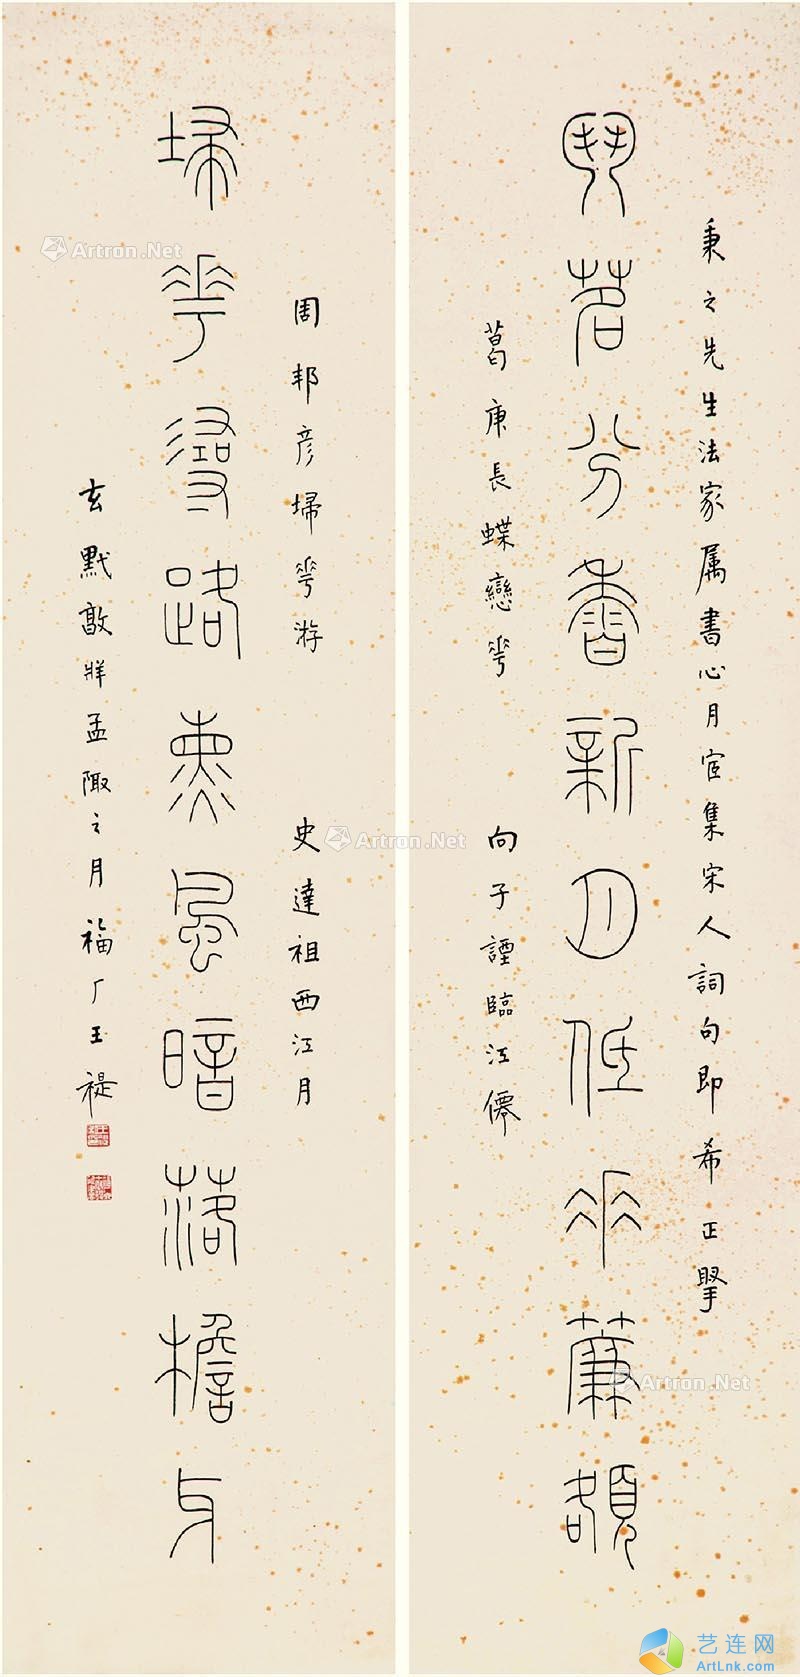 秉之先生法家属書心月宧集宋人詞句即希正擥
鬥茗分香新月低垂簾額
葛庚長蝶戀花
向子諲臨江僊
周邦彥埽花游
史達祖西江月
埽花尋路東風暗落檐牙
玄黓敦牂孟陬之月福厂王禔
Artron.Net
Artron.Net
Artron.Net
艺连网
ArtLnk.com